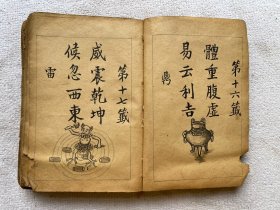 第十六籤
體重腹虛
易云利吉
第十七籤
威震乾坤
倏忽西東
雷